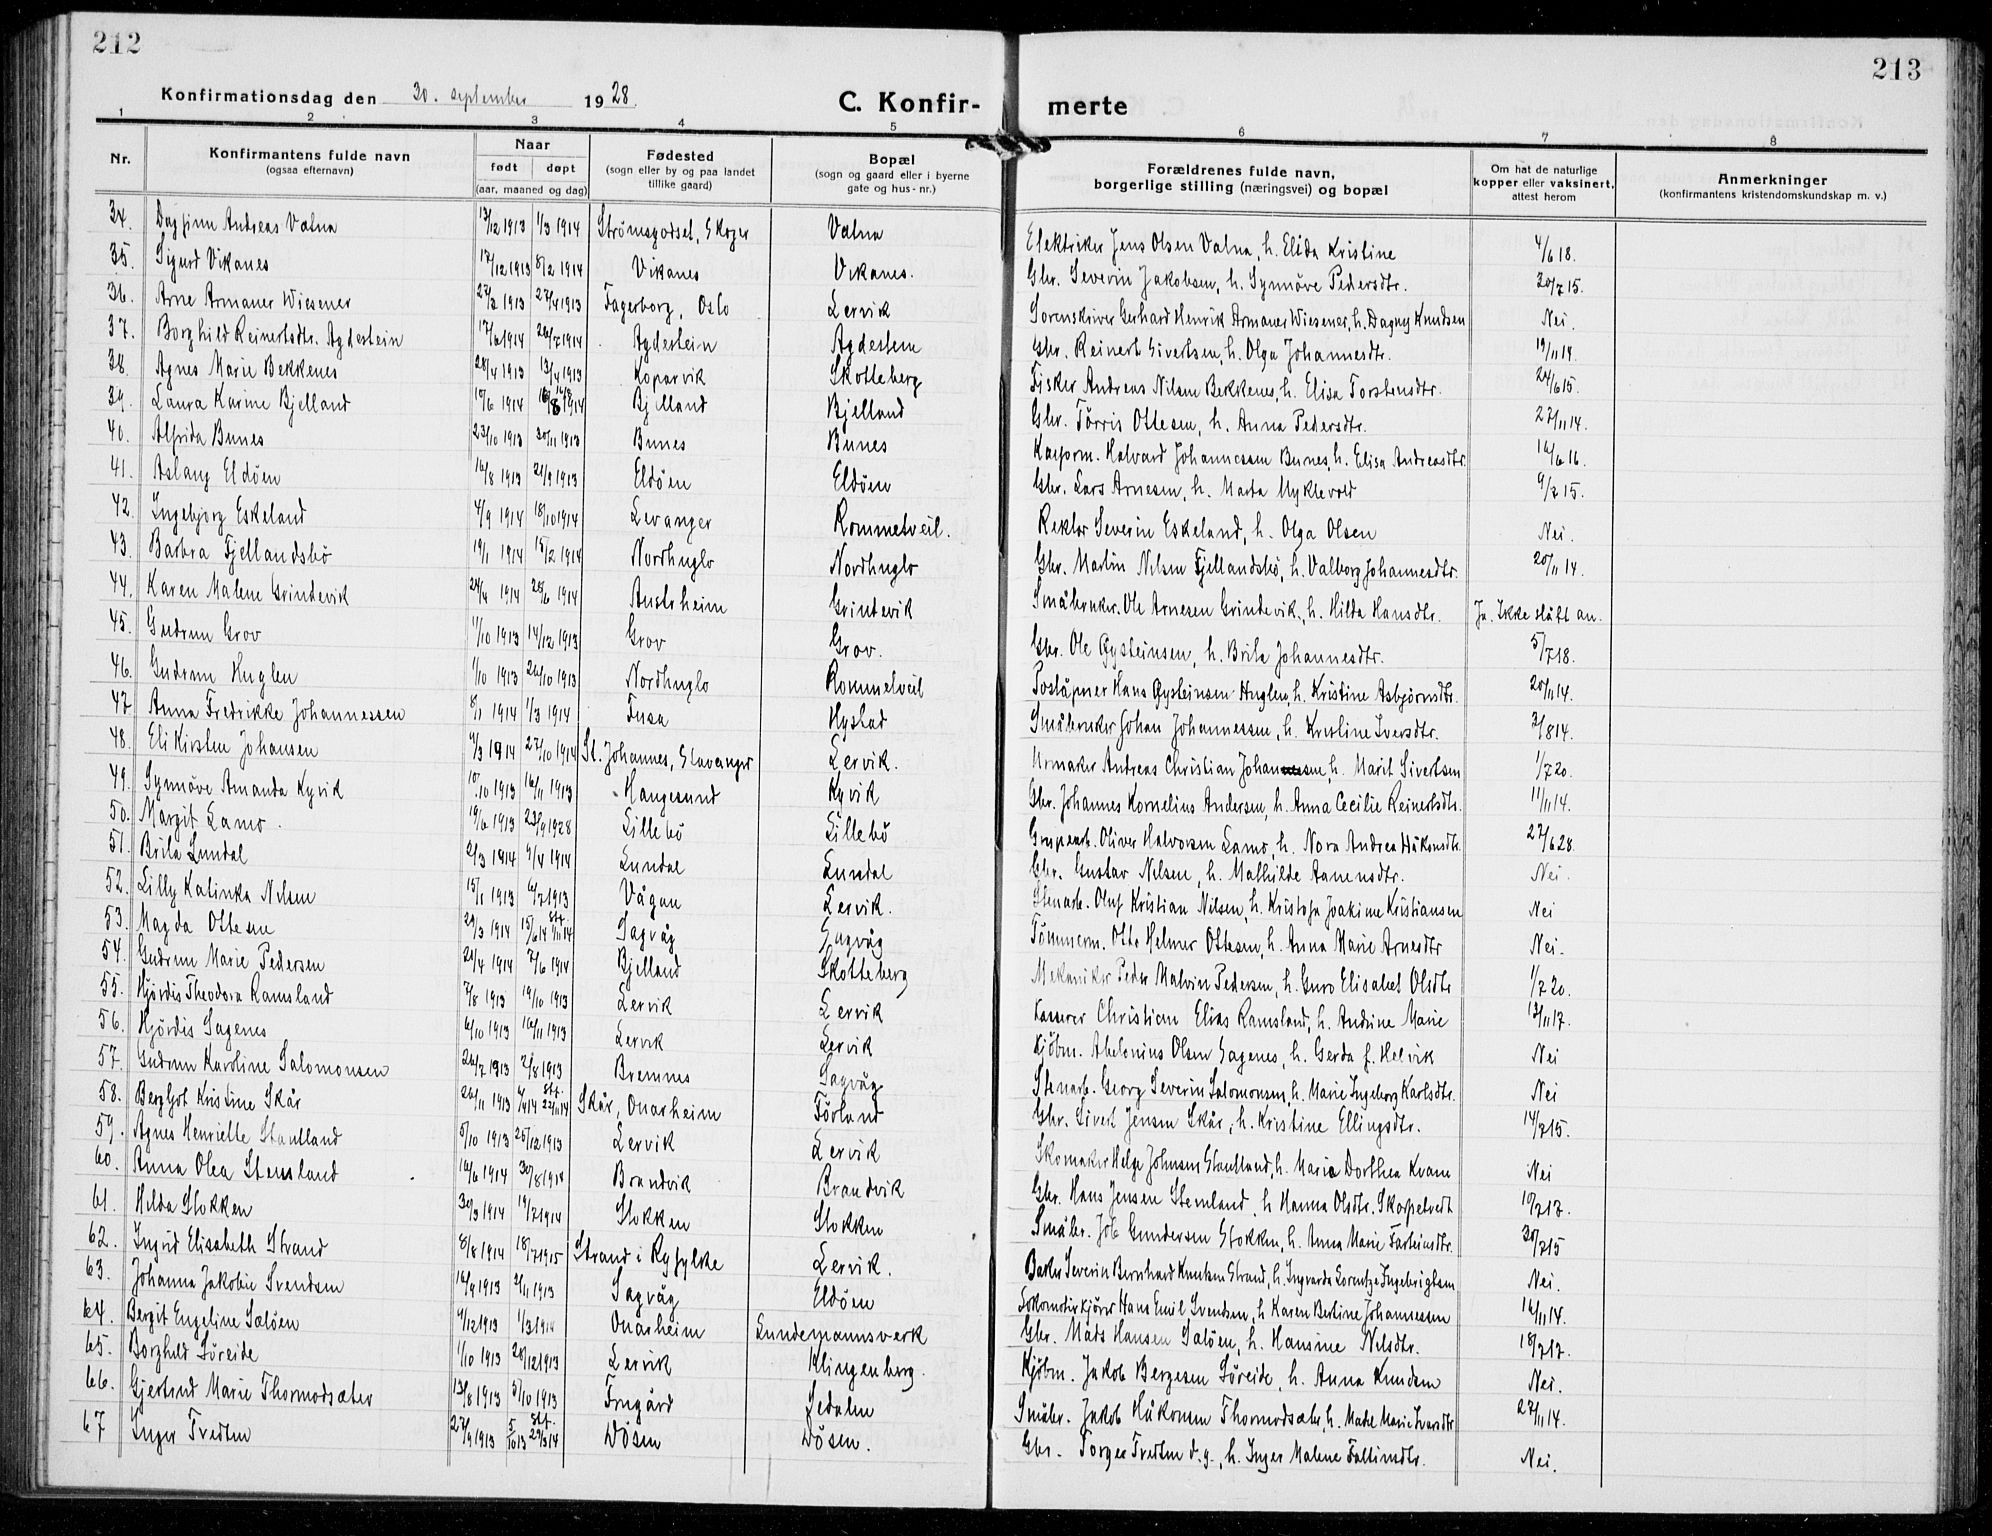 212
213
Konfirmationsdag den 30. september 1928.
C. Konfir- merte
1 2 3 4 5 6 7 8
Nr. | Konfirmantens fulde navn (ogsaa efternavn) | Naar født | døpt (aar, maaned og dag) | Fødested (sogn eller by og paa landet tillike gaard) | Bopæl (sogn og gaard eller i byerne gate og hus-nr.) | Forældrenes fulde navn, borgerlige stilling (næringsvei) og bopæl | Om hat de naturlige kopper eller vaksinert, attest herom | Anmerkninger (konfirmantens kristendomskundskap m. v.)
34. Dagfinn Andreas Valna 13/12 1913 1/3 1914 Strømsgodset, Skoger Valna Elektriker Jens Olsen Valna, h. Elida Kristine 4/6 18.
35. Sigurd Vikanes 17/12 1913 8/2 1914 Vikanes Vikanes. Gbr. Severin Jakobsen, h. Synnöve Pedersdtr. 20/7 15.
36. Arne Armauer Wiesener 27/2 1913 27/4 1913 Fagerborg, Oslo Lervik Sorenskriver Gerhard Henrik Armauer Wiesener, h. Dagny Knudsen Nei.
37. Borghild Reinertsdtr. Agdestein 17/6 1914 26/7 1914 Agdestein Agdestein Gbr. Reinert Sivertsen, h. Olga Johannesdtr. 19/11 14.
38. Agnes Marie Bekkenes 28/4 1913 13/4 1913 Koparvik Skotteberg Fisker Andreas Nilsen Bekkenes, h. Elisa Torstensdtr. 24/6 15.
39. Laura Karine Bjelland 15/6 1914 16/8 1914 Bjelland Bjelland Gbr. Törris Ottesen, h. Anna Pedersdtr. 27/11 14.
40. Alfrida Bunes 23/10 1913 30/11 1913 Bunes Bunes Halvard Johannessen Bunes, h. Elisa Andreasdtr. 16/6 16.
41. Aslaug Eldöen 16/8 1913 21/9 1913 Eldöen Eldöen Gbr. Lars Arnesen, h. Marta Myklevold 9/7 15.
42. Ingebjorg Eskeland 4/9 1914 18/10 1914 Levanger Rommetveit. Rektor Severin Eskeland, h. Olga Olsen Nei.
43. Barbra Fjellandsbö 19/1 1914 15/2 1914 Nordhuglo Nordhuglo Gbr. Martin Nilsen Fjellandsbö, h. Valborg Johannesdtr. 20/11 14.
44. Karen Malene Grindevik 24/4 1914 28/6 1914 Austrheim Grindevik Småbruker Ole Arnesen Grindevik, h. Hilda Hansdtr. Ja. Ikke slått an.
45. Gudrun Grov 11/10 1913 14/12 1913 Grov Grov. Gbr. Ole Øysteinsen, h. Brita Johannesdtr. 5/7 18.
46. Gudrun Huglen 1/10 1913 26/10 1913 Nordhuglo Rommetveit Poståpner Hans Øysteinsen Huglen, h. Kristine Asbjörnsdtr. 20/11 14.
47 Anna Fredrikke Johannessen 8/1 1914 1/3 1914 Fusa Hystad Småbruker Johan Johannessen, h. Kristine Iversdtr. 3/8 14.
48. Eli Kirsten Johansen 4/3 1914 27/10 1914 St. Johannes, Stavanger Lervik. Urmaker Andreas Christian Johansen, h. Marit Sivertsen 1/7 20.
49. Synnöve Amanda Kyvik 10/10 1913 16/11 1913 Haugesund Kyvik Gbr. Johannes Kornelius Andersen, h. Anna Cecilie Reinertsdtr. 11/11 14.
50. Margit Lamo. 19/6 1913 23/9 1928 Lillebö Lillebö Grupearb. Oliver Halvorsen Lamo, h. Nora Andrea Håkonsdtr. 27/6 28.
51. Brita Lundal 2/3 1914 9/4 1914 Lundal Lundal Gbr. Gustav Nilsen, h. Mathilde Aanensdtr. Nei.
52. Lilly Katinka Nilsen 15/1 1913 6/7 1913 Vågan Lervik. Stenarb. Oluf Kristian Nilsen, h. Kristofa Joakime Kristiansen Nei
53. Magda Ottesen 29/3 1914 15/6 14 stf. 1/11 14 Sagvåg Sagvåg Tömmerm. Otto Helmer Ottesen, h. Anna Marie Arnesdtr Nei.
54. Gudrun Marie Pedersen 21/4 1914 7/6 1914 Bjelland Skotteberg Mekaniker Peder Malvin Pedersen, h. Guro Elisabet Olsdtr 1/7 20.
55. Hjördis Theodora Ramsland 7/8 1913 19/10 1913 Lervik Lervik Kasserer Christian Elias Ramsland, h. Andrine Marie 13/11 17.
56. Hjördis Sagenes 6/10 1913 16/11 1913 Lervik Lervik Kjöbm. Abelonius Olsen Sagenes, h. Gerda f. Helvik Nei
57. Gudrun Karoline Salomonsen 26/7 1913 2/8 1913 Bremnes Sagvåg Stenarb. Georg Severin Salomonsen, h. Marie Ingeborg Karlsdtr. Nei
58. Bergljot Kristine Skår 26/11 1913 4/4 14 stf. 22/11 14 Skår, Onarheim Förland Gbr. Sivert Jensen Skår, h. Kristine Ellingsdtr. 14/7 15.
59. Agnes Henriette Stautland 5/10 1913 25/12 1913 Lervik Lervik Skomaker Helge Johnsen Stautland, h. Maria Dorthea Kvam Nei
60. Anna Olea Stensland 16/6 1914 30/8 1914 Brandvik Brandvik Gbr. Hans Jensen Stensland, h. Hanna Olsdtr. Skorpetvedt 10/7 17.
61. Hilda Stokken 30/3 1914 19/7 1914 Stokken Stokken Småbr. Job Gundersen Stokken, h. Anna Marie Farteinsdtr. 30/7 15
62. Ingrid Elisabeth Strand 8/8 1914 18/7 1915 Strand i Ryfylke Lervik. Baker Severin Bernhard Knutsen Strand, h. Ingvarda Lorentze Ingebrigtsen Nei.
63. Johanna Jakobie Svendsen 16/9 1913 2/11 1913 Sagvåg Eldöen Lokomotivkjörer Hans Emil Svendsen, h. Karen Bertine Johannessen 16/11 14.
64. Bergit Engeline Sælöen 4/12 1913 1/3 1914 Onarheim Lundemannsverk Gbr. Mads Hansen Salöen, h. Hansine Nilsdtr. 18/7 17.
65. Borghild Söreide 1/10 1913 28/12 1913 Lervik Klingenberg. Kjöbm. Jakob Bergesen Söreide, h. Anna Knudsen Nei.
66. Gjertrud Marie Thormodsæter 13/8 1913 5/10 1913 Frugård Sedalen Småbr. Jakob Håkonsen Thormodsæter, h. Mabel Marie Ivarsdtr 27/11 14.
67 Inger Tvedten 27/9 1913 5/10 13 stf. 29/3 14 Dösen Dösen. Gbr. Torger Tvedten d.y., h. Inger Malene Faltinsdtr. Nei.